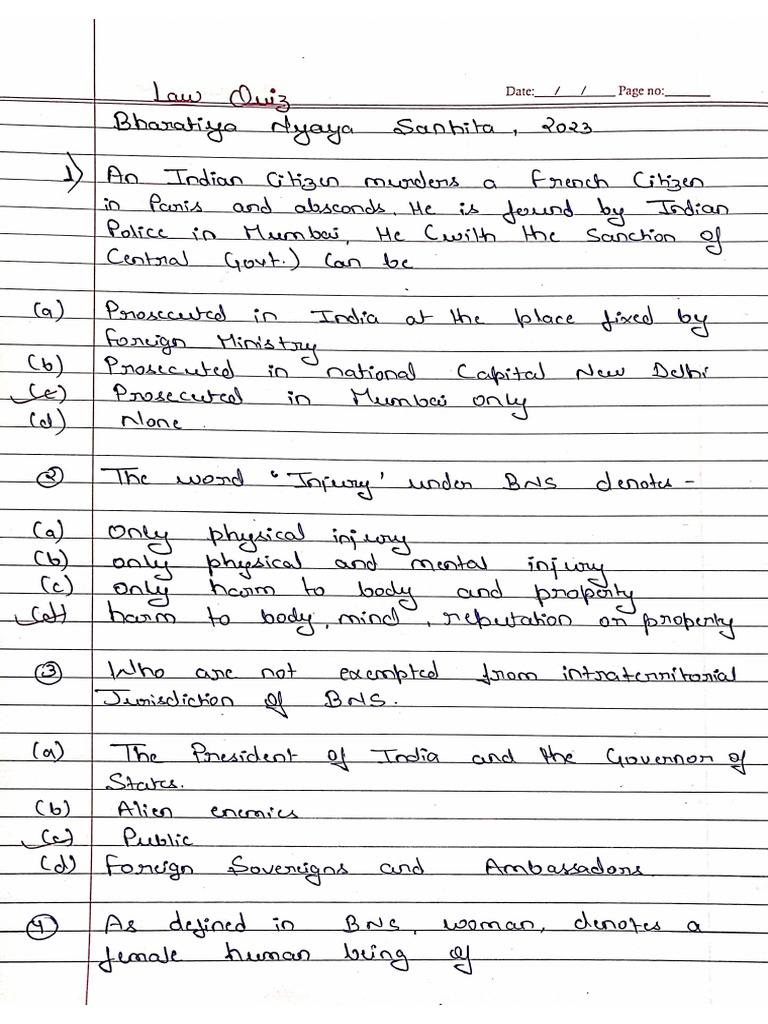 Law Quiz
Date: / / Page no:
Bharatiya Nyaya Sanhita, 2023
1) An Indian Citizen murders a French Citizen
in Paris and absconds. He is found by Indian
Police in Mumbai, He (with the Sanction of
Central Govt.) can be
(a) Prosecuted in India at the place fixed by
Foreign Ministry
(b) Prosecuted in national Capital New Delhi
(c) Prosecuted in Mumbai only
(d) None
② The word "Injury' under BNS denotes -
(a) only physical injury
(b) only physical and mental injury
(c) only harm to body and property
(d) harm to body, mind, reputation or property
③ Who are not exempted from intraterritorial
Jurisdiction of BNS.
(a) The President of India and the Governor of
States.
(b) Alien enemies
(c) Public
(d) Foreign Sovereigns and Ambassadors.
④ As defined in BNS, woman, denotes a
female human being of